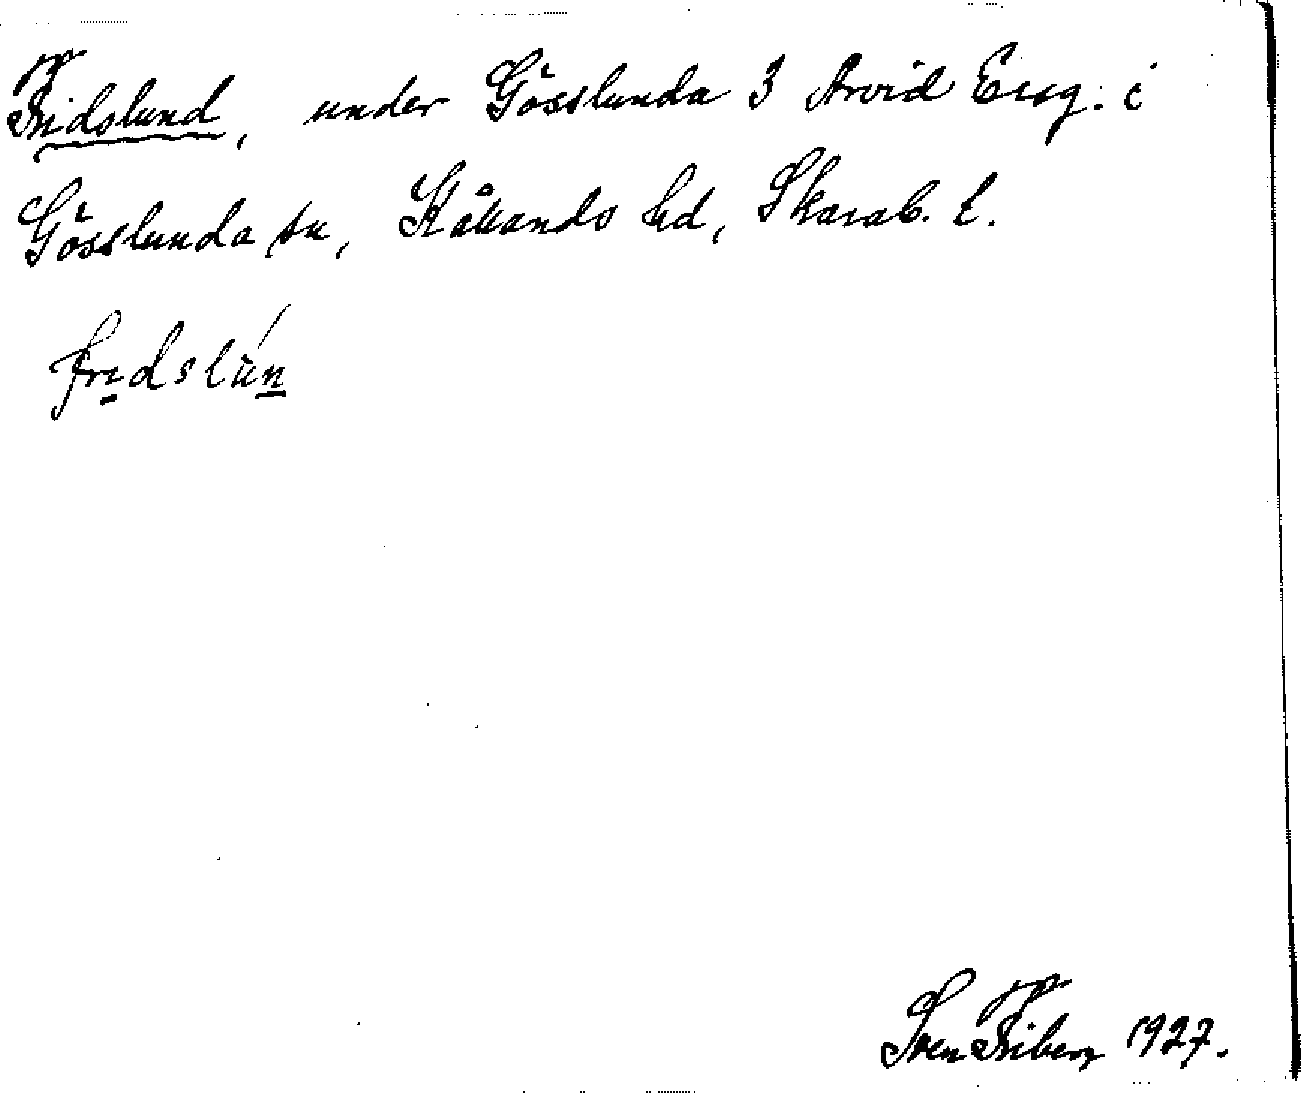 Fridslund, under Gösslunda 3 Arvid Ersg. i
Gösslunda sn, Kållands hd, Skarab. l.
fridslún
Sven Friberg 1927.